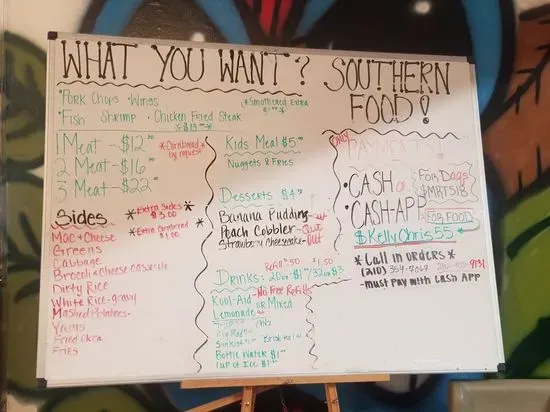 WHAT YOU WANT? SOUTHERN FOOD!
•Pork Chops •Wings
*Smothered Extra
•Fish Shrimp •Chicken Fried Steak
1 Meat - $12.00
2 Meat - $16.00
3 Meat - $22.00
*Cornbread by request
Sides
*Extra Sides $3.00 *
*Extra Cornbread $1.00 *
Mac & Cheese
Greens
Cabbage
Brocoli & cheese casserole
Dirty Rice
White Rice-gravy
Mashed Potatoes-
Yams
Fried Okra
Fries
Kids Meal $5.00
Nuggets & Fries
Desserts $4
Banana Pudding-out
Peach Cobbler-Out
Strawberry cheesecake-Out
Refill $1.50
Drinks: 20oz $1 / 32oz $3
No Free Refills
Kool-Aid or Mixed
Lemonade
Big Red
Sunkist
Bottle Water $1.00
Cup of Ice $1.00
Only
PAYMENTS!
•CASH or
•CASH-APP
For Dads
$MRTS18
FOR FOOD
$KellyChris55
*Call in orders*
(210) 354-7069
9131
-must Pay with Cash App